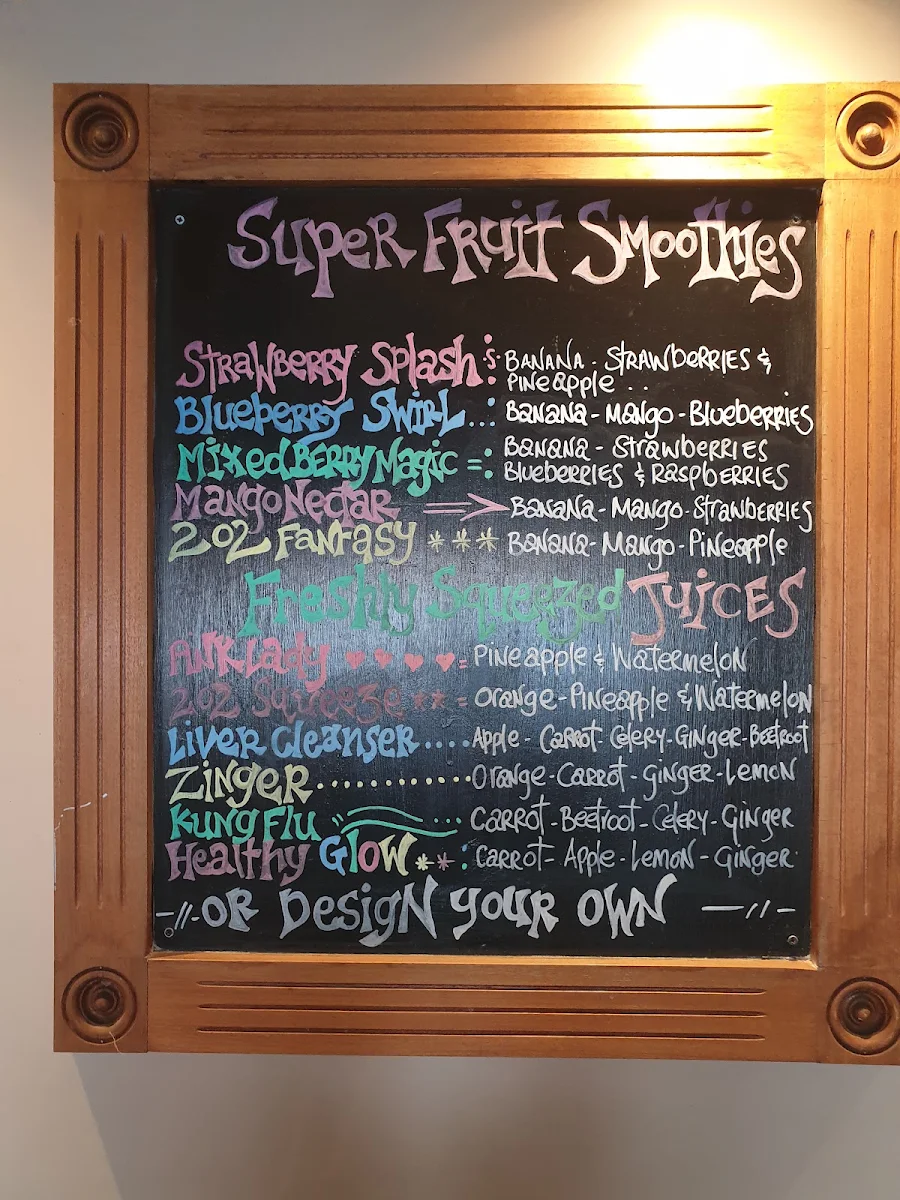 Super Fruit Smoothies
Strawberry Splash : Banana - Strawberries &
Pineapple . .
Blueberry Swirl ..: Banana - Mango - Blueberries
Mixed Berry Magic =: Banana - Strawberries
Blueberries & Raspberries
Mango Nectar → Banana - Mango - Strawberries
202 Fantasy *** Banana - Mango - Pineapple
Freshly Squeezed Juices
Pink Lady ♥♥♥♥= Pineapple & Watermelon
202 Squeeze ** = Orange - Pineapple & Watermelon
Liver Cleanser .... Apple - Carrot Celery - Ginger - Beetroot
Zinger ............ Orange - Carrot - Ginger - Lemon
Kung Flu ... Carrot - Beetroot - Celery - Ginger
Healthy Glow ** : Carrot - Apple - Lemon - Ginger
-//- OR Design your own —//-